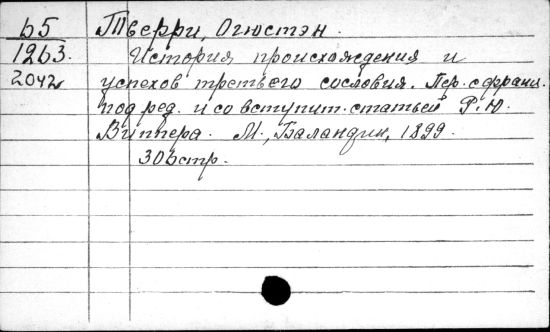 Б5 Тьерри, Огюстэн.
1263. История происхождения и
2042 успехов третьего сословия. Пер. с франц.
под ред. и со вступит. статьей Р. Ю.
Виппера. М., Баландин, 1899.
306 стр.